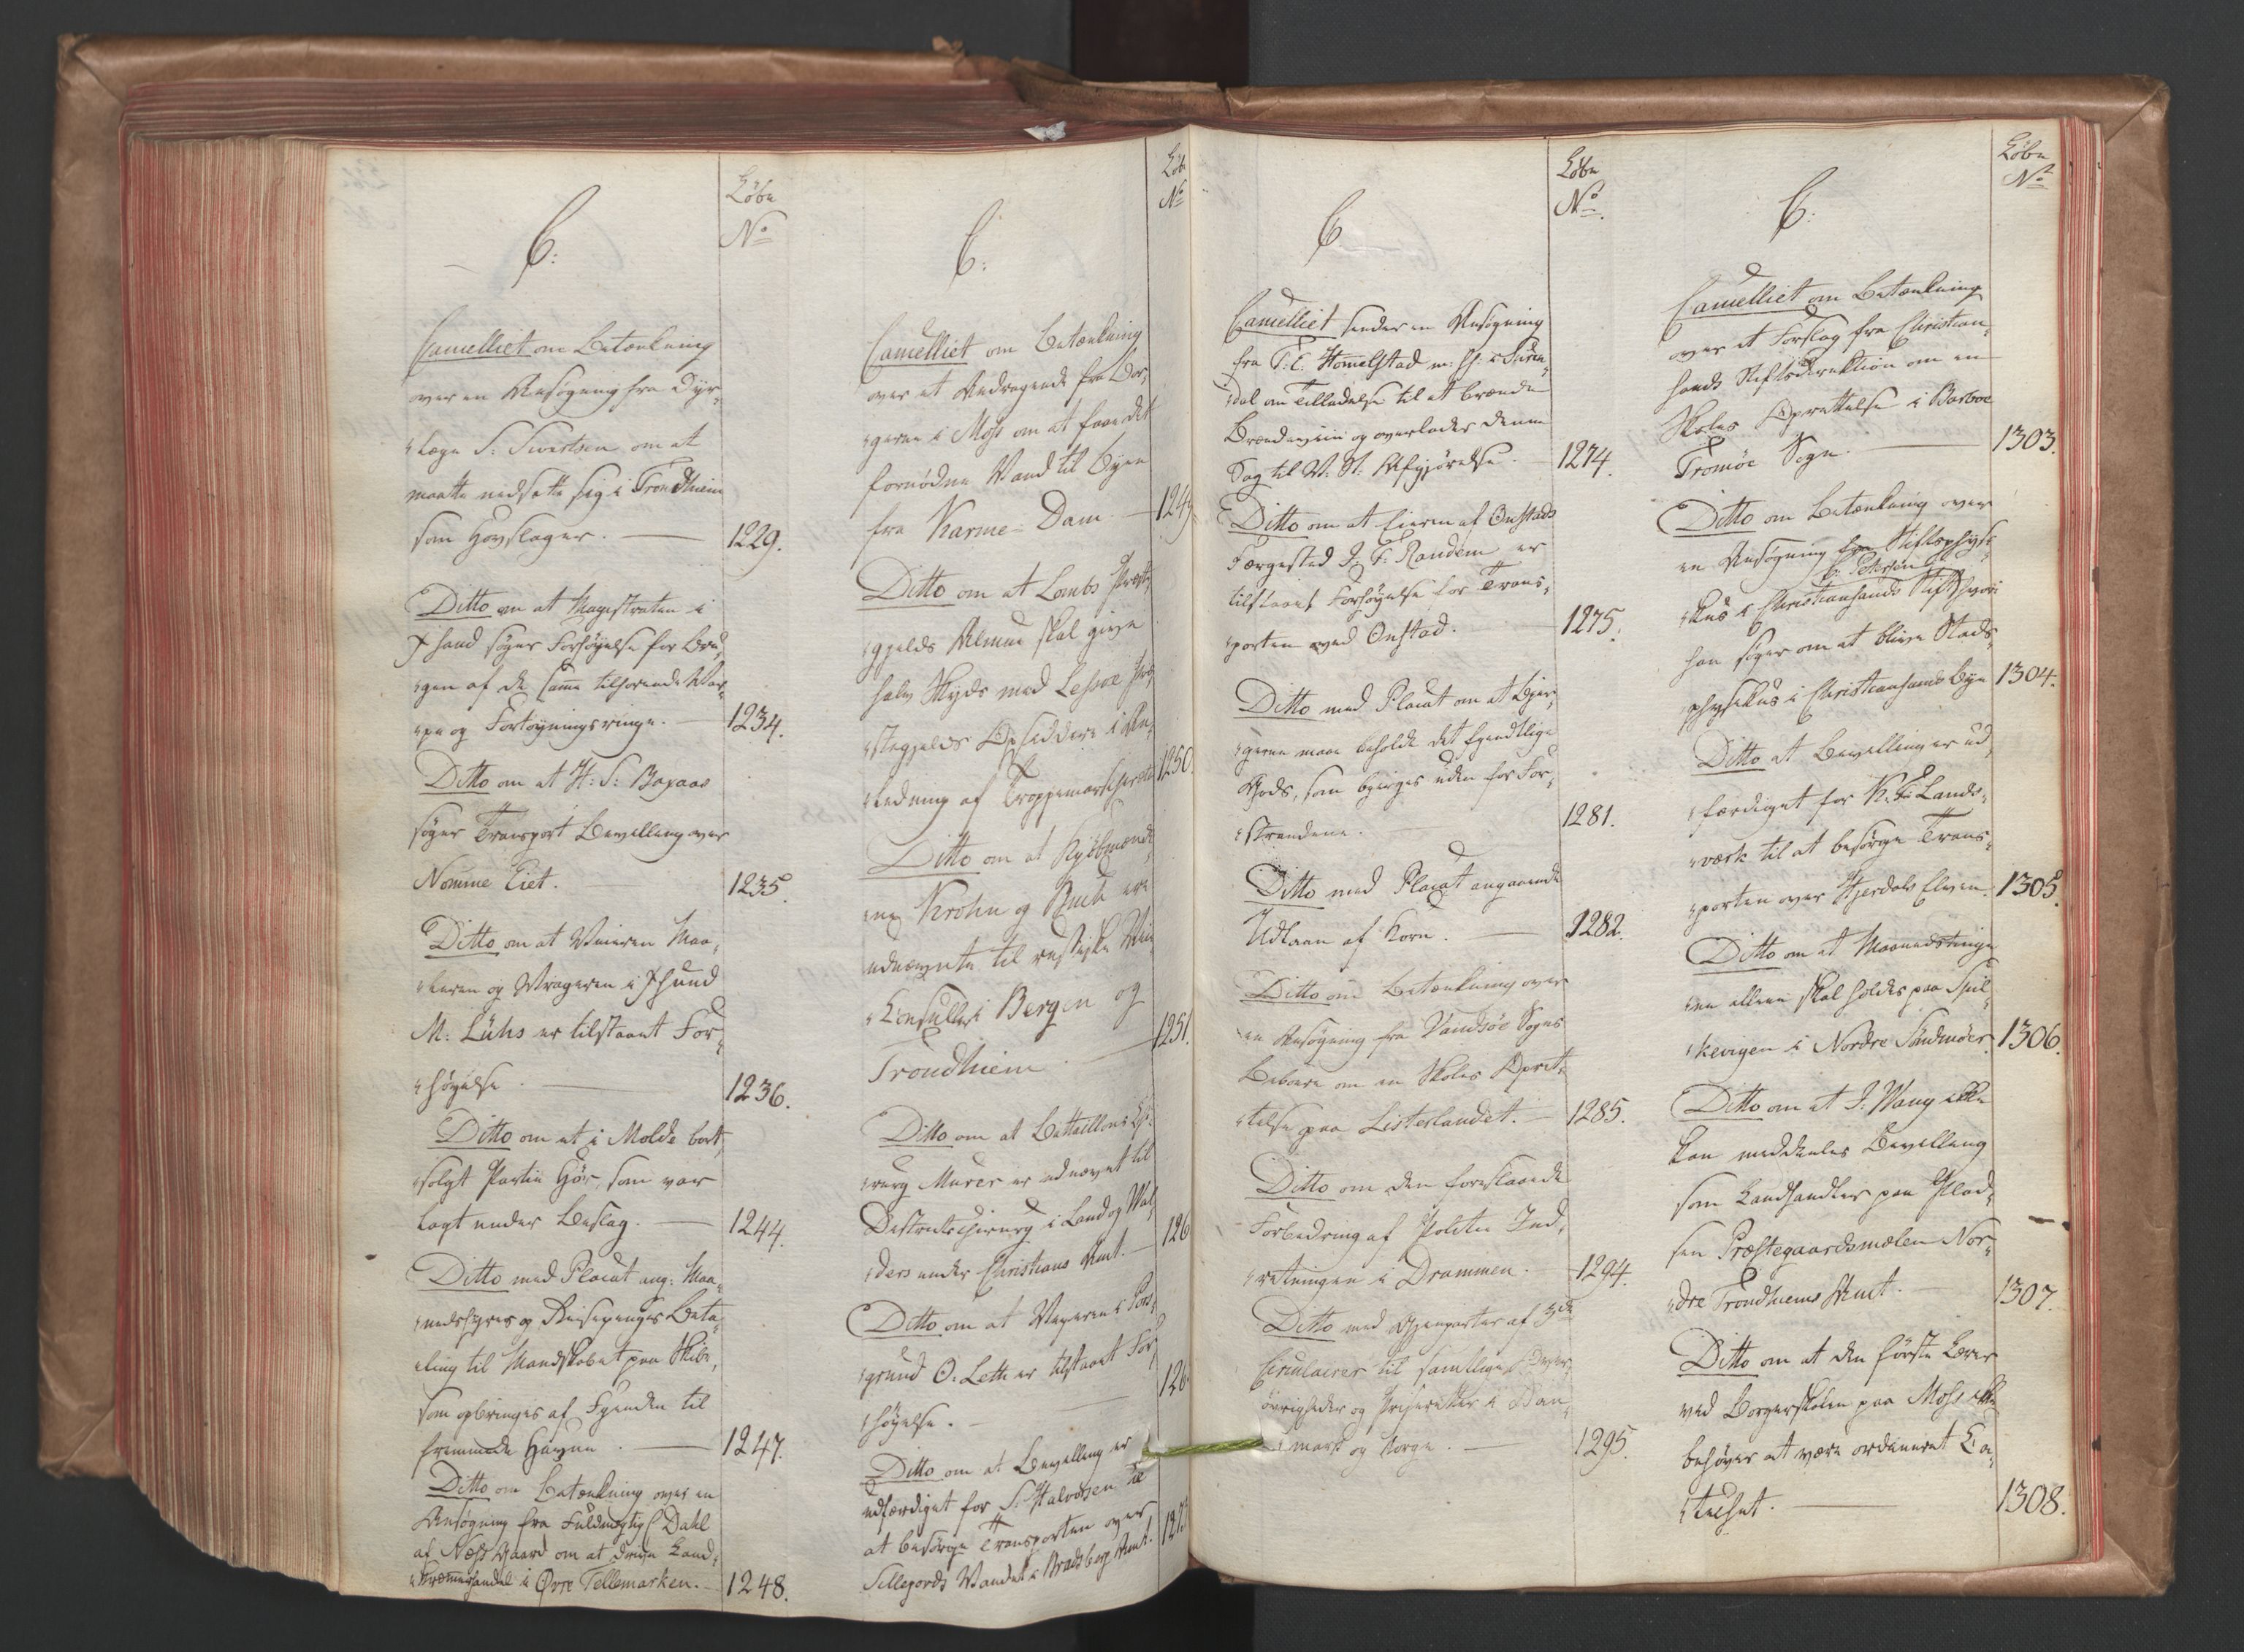 C:
Løbe
No
Cancelliet om Betænkning
over en Ansøgning fra Dyr„
„læge S: Sivertsen om at
maatte nedsætte sig i Trondhiem
som Hovslager. 1229.
Ditto om at Magistraten i
Xsand søger Forhøyelse for Bru„
„gen af de samme tilhørende Var„
„pe og Fortøyningsringe. 1234.
Ditto om at H: S: Bagaas
søger Transport Bevilling over
Nomme Eiet. 1235.
Ditto om at Veieren Maa„
„leren og Vrageren i Xsund
M: Lühs er tilstaaet For„
„høyelse. 1236.
Ditto om et i Molde bort„
„solgt Partie Hør, som var
lagt under Beslag. 1244.
Ditto med Placat ang: Maa„
„nedshyres og Reisepenges Beta„
„ling til Mandskabet paa Skibe,
som opbringes af Fienden til
fremmede Havne. 1247.
Ditto om Betænkning over en
Ansøgning fra Fuldmægtig Dahl
af Næss Gaard om at drive Land„
„kræmmerhandel i Øvre Tellemarken. 1248.
C:
Løb
No
Cancelliet om Betænkning
over et Andragende fra Bor„
„gerne i Moss om at faae det
fornødne Vand til Byen
fra Karme-Dam. 1249
Ditto om at Lombs Præste„
„gjelds Almue skal give
halv Skyds med Lessøe Præ„
„stegjelds Opsiddere i An„
„ledning af Troppemarscherne 1250.
Ditto om at Kjøbmænde„
„ne Krohn og Buch ere
udnævnte til russiske Vice
„Consuller i Bergen og
Trondhiem 1251.
Ditto om at Battaillons Chi„
„rurg Murer er udnævnt til
Districtschirurg i Land og Val„
„ders under Christians Amt. 126
Ditto om at Veieren i Pors„
„grund O. Leth er tilstaaet For„
„høyelse. 126
Ditto om at Bevilling er
udfærdiget for S: Halvorsen til
at besørge Transporten over
Sillejords Vandet i Bradsberg Amt. 127
C
Løbe
No.
Cancelliet sender en Ansøgning
fra T: E. Homelstad m: fl: i Suren„
„dal om Tilladelse til at brænde
Brændeviin og overlader denne
Sag til V: St: Afgjørelse. 1274.
Ditto om at Eieren af Onstads
Færgested J: F: Randem er
tilstaaet Forhøyelse for Trans„
„porten ved Onstad. 1275.
Ditto med Placat om at Bjer„
„gerne maae beholde det fiendtlige
Gods, som bjerges uden for For„
„strandene. 1281.
Ditto med Placat angaaende
Udlaan af Korn. 1282.
Ditto om Betænkning over
en Ansøgning fra Vandsøe Sogns
Beboere om en Skoles Opret„
„telse paa Listerlandet. 1285.
Ditto om den foreslaaede
Forbedring af Politie Ind„
„retningen i Drammen. 1294.
Ditto med Gjenparter af 3de
Circulairer til samtlige Over„
„øvrigheder og Priseretter i Dan„
„mark og Norge. 1295.
C:
Løbe
No
Cancelliet om Betænkning
over et Forslag fra Christian„
sands Stiftsdirektion om en
Skoles Oprettelse i Barboe
Tromøe Sogn. 1303.
Ditto om Betænkning over
en Ansøgning fra Stiftsphysi„
C: Petersen
„kus i Christiansands Stift hvori
han søger om at blive Stads„
„physikus i Christiansands Bye 1304.
Ditto at Bevilling er ud„
„færdiget for K: F: Lands„
„værk til at besørge Trans„
„porten over Hjerdals Elven 1305.
Ditto om at Maanedstinge„
„ne allene skal holdes paa Spil„
„kevigen i Nordre Søndmøer. 1306.
Ditto om at J: Wang ikke
kan meddeeles Bevilling
som Landhandler paa Plad„
sen Præstegaardsmælen Nor„
„dre Trondhiems Amt. 1307.
Ditto om at den første Lærer
ved Borgerskolen paa Moss ikke
behøver at være ordineret Ca„
„techet. 1308.